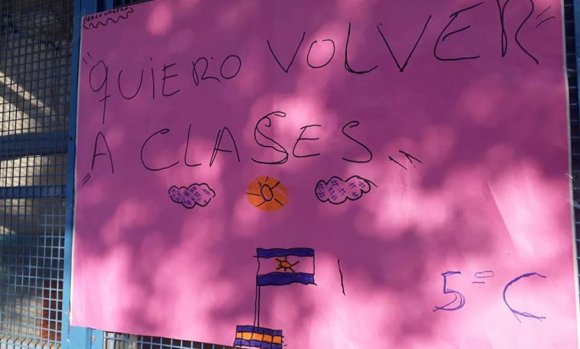 "QUIERO VOLVER"
A CLASES"
5º C